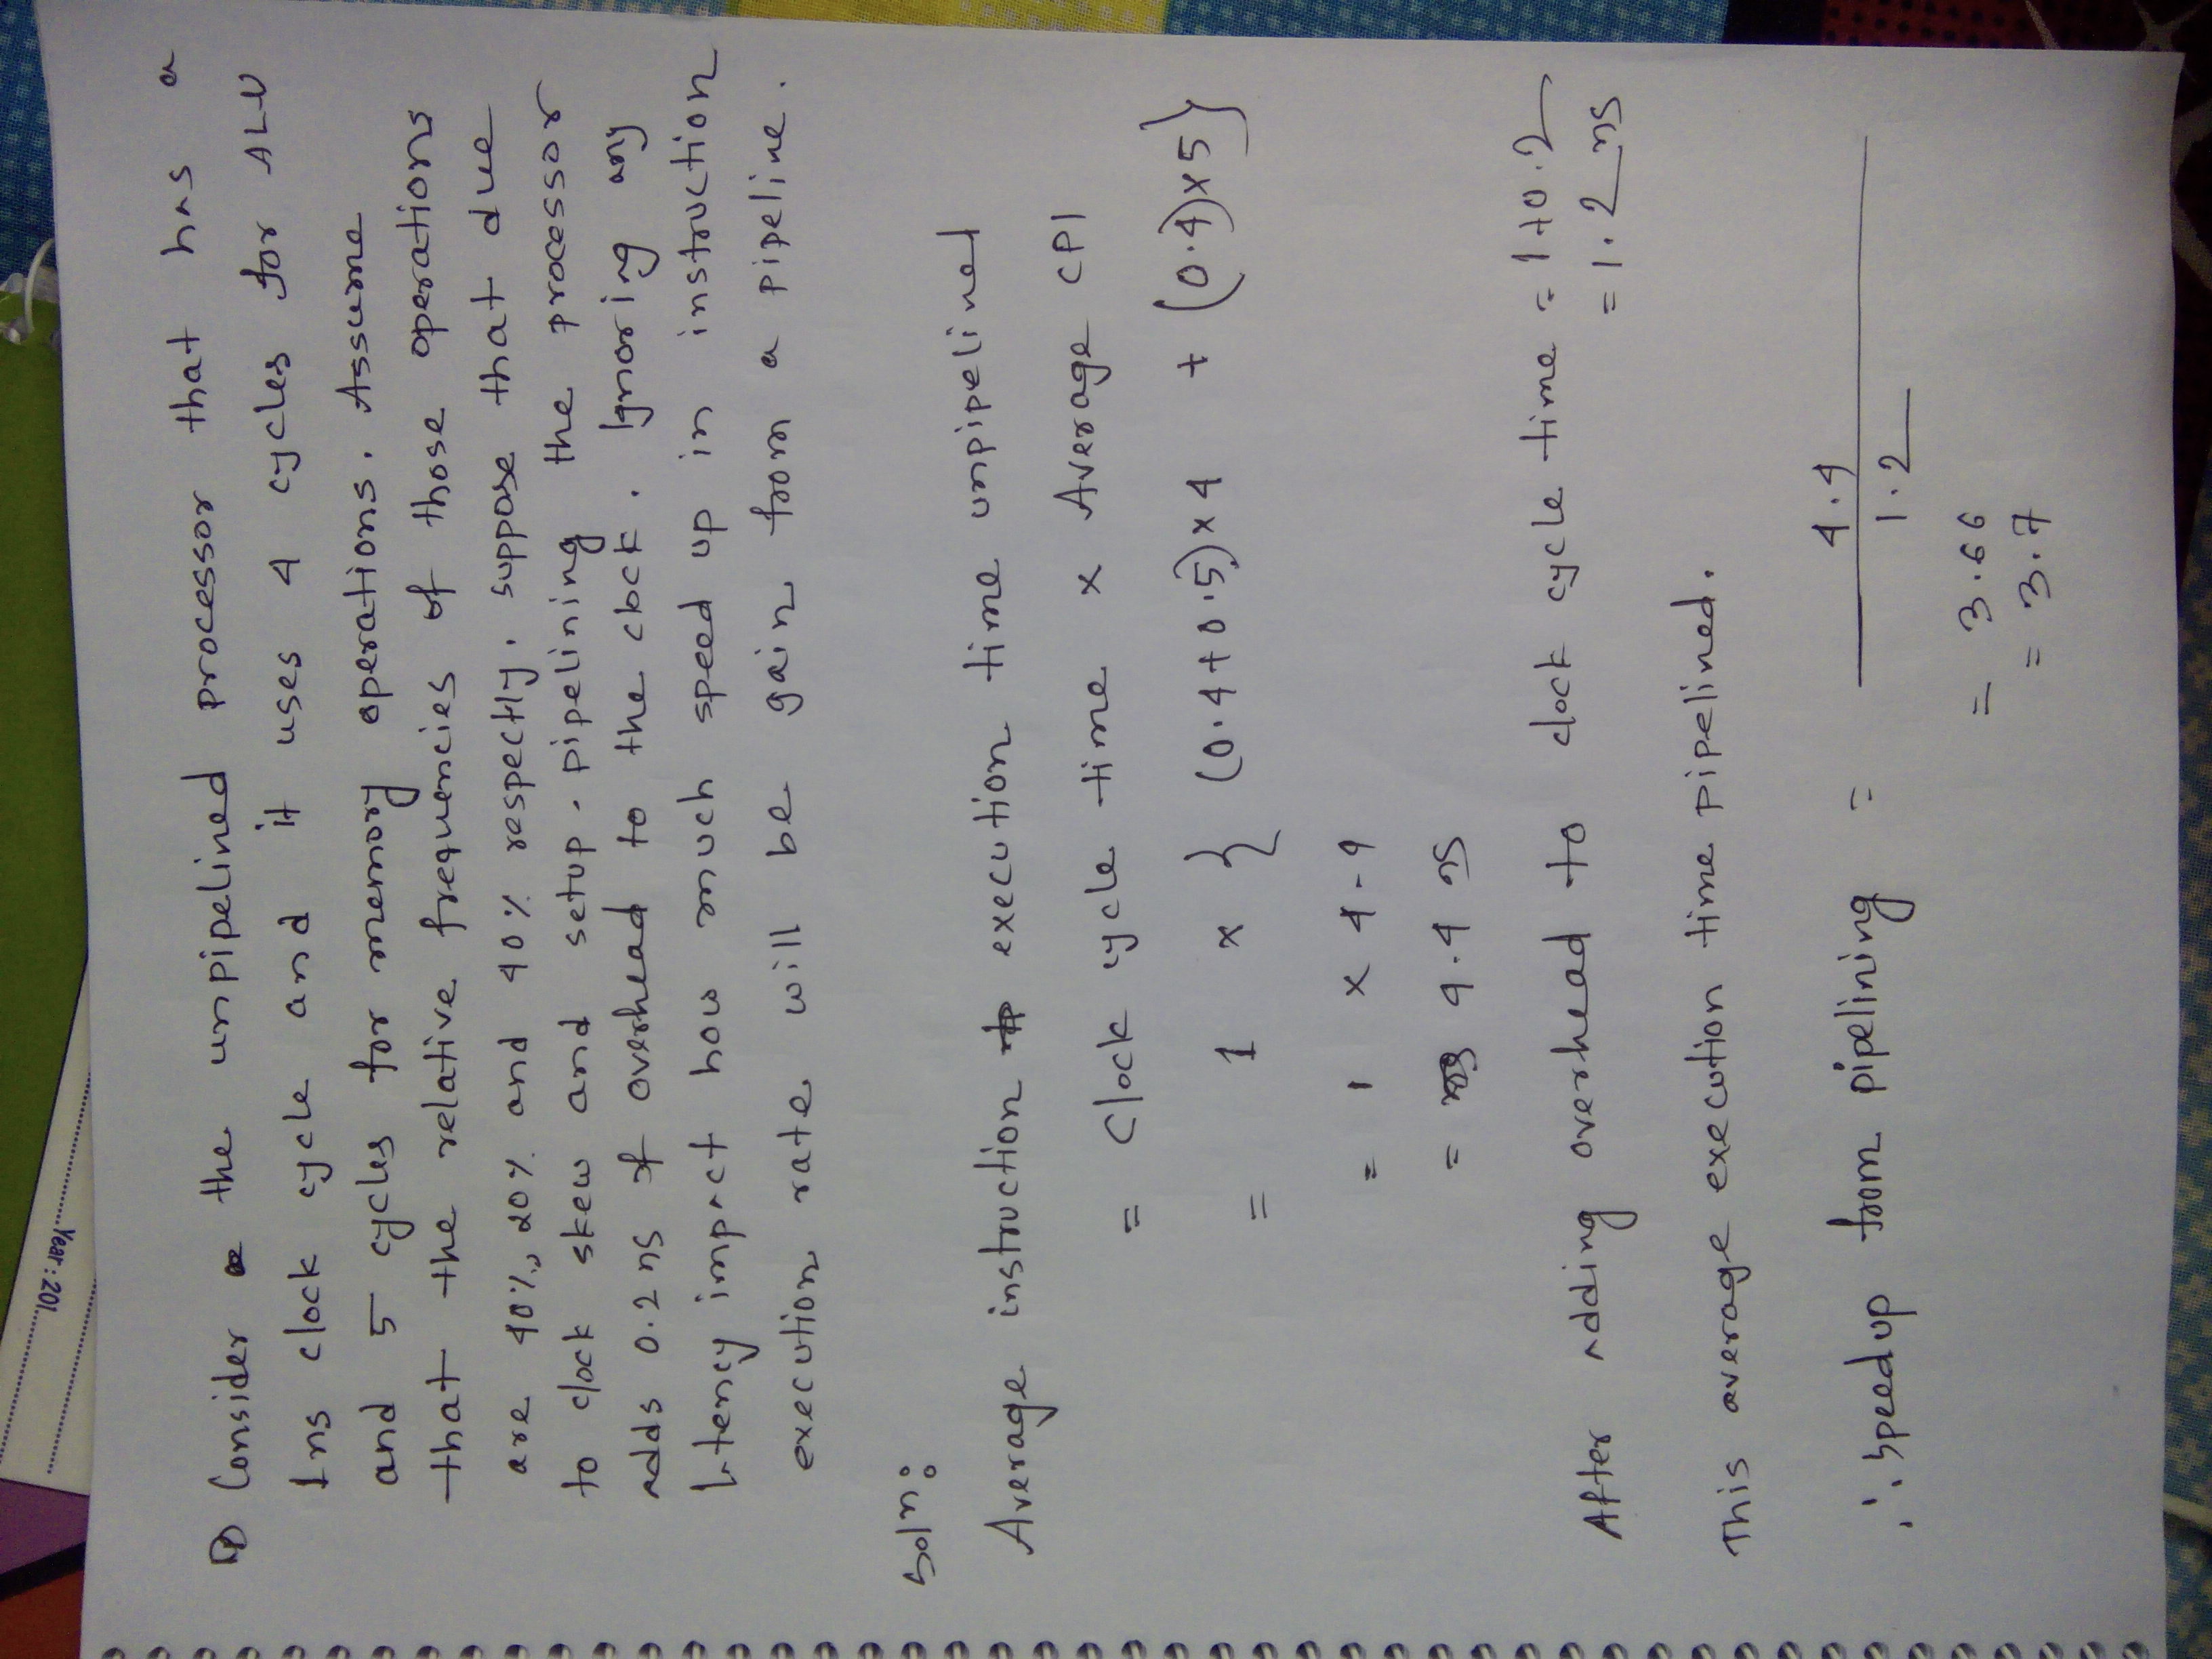 Year : 201
1) Consider the unpipelined processor that has a
1ns clock cycle and it uses 4 cycles for ALU
and 5 cycles for memory operations. Assume
that the relative frequencies of those operations
are 40%, 20% and 40% respectly. suppose that due
to clock skew and setup. pipelining the processor
adds 0.2 ns of overhead to the clock. Ignoring any
latency impact how much speed up in instruction
execution rate will be gain from a pipeline.
Soln:
Average instruction execution time unpipelined
= Clock cycle time × Average CPI
= 1 × { (0.4+0.5)×4 + (0.4)×5}
= 1 × 4.4
= 4.4 ns
After adding overhead to clock cycle time = 1+0.2
= 1.2 ns
This average execution time pipelined.
∴ Speedup from pipelining = 4.4
1.2
= 3.66
= 3.7